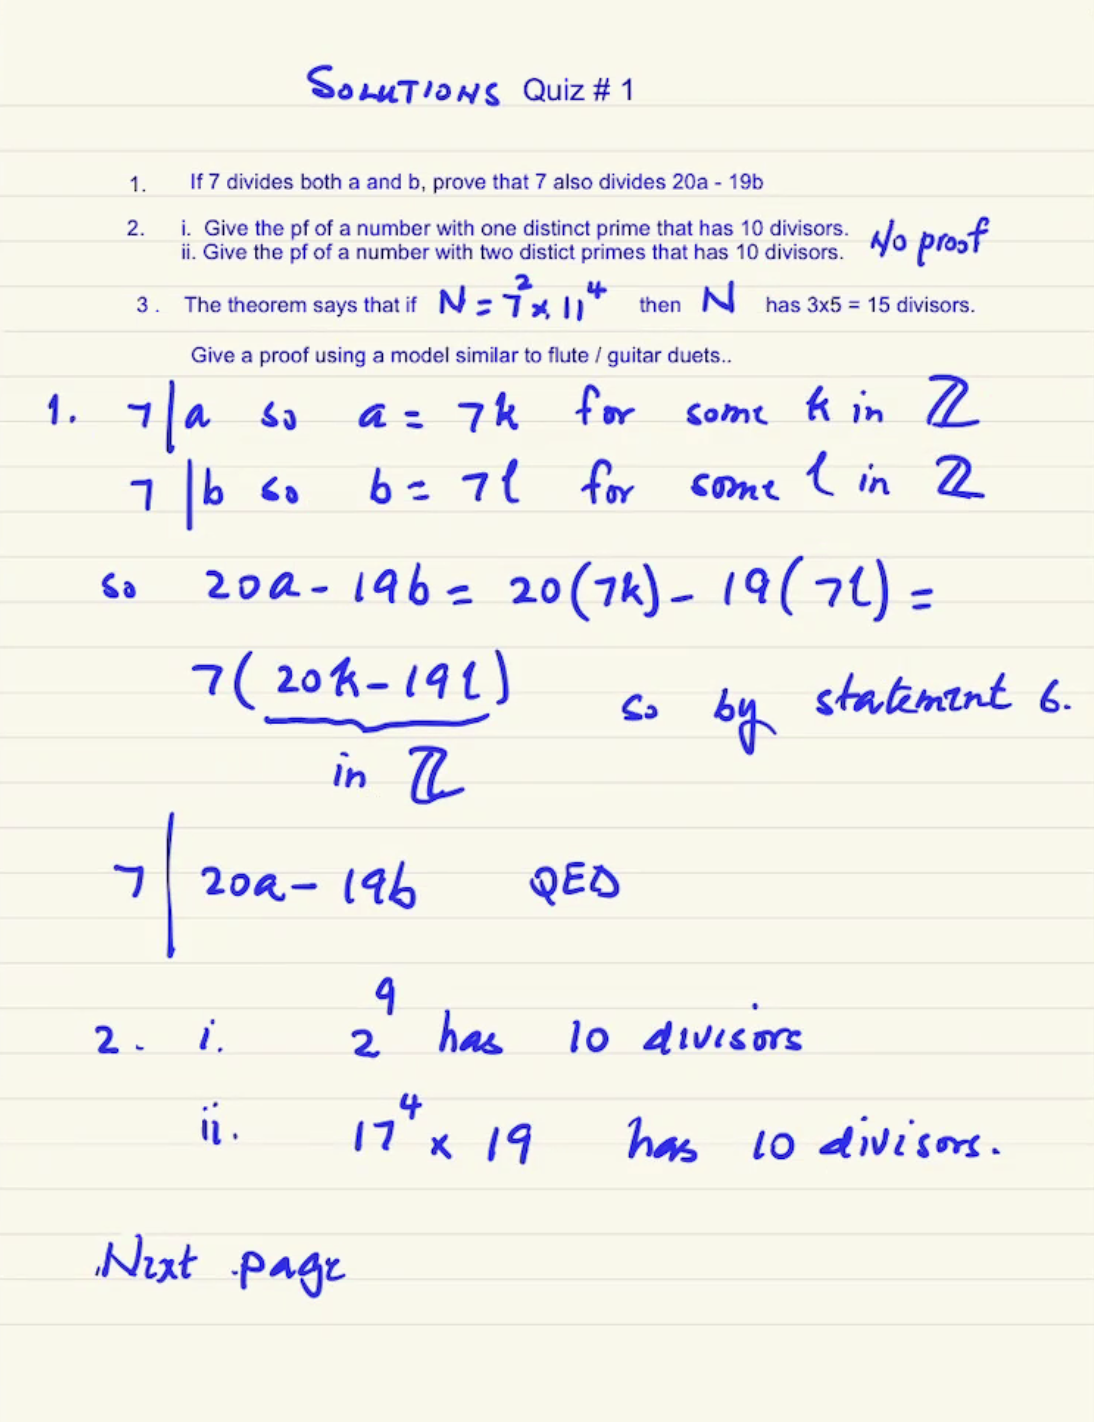 SOLUTIONS Quiz # 1
1. If 7 divides both a and b, prove that 7 also divides 20a - 19b
2. i. Give the pf of a number with one distinct prime that has 10 divisors. No proof
ii. Give the pf of a number with two distict primes that has 10 divisors.
3 . The theorem says that if N = 7² x 11⁴ then N has 3x5 = 15 divisors.
Give a proof using a model similar to flute / guitar duets..
1. 7|a so a = 7k for some k in ℤ
7|b so b = 7l for some l in ℤ
so 20a - 19b = 20(7k) - 19(7l) =
7(20k - 19l) so by statement 6.
in ℤ
7|20a - 19b QED
2. i. 2⁹ has 10 divisors
ii. 17⁴ x 19 has 10 divisors.
Next page